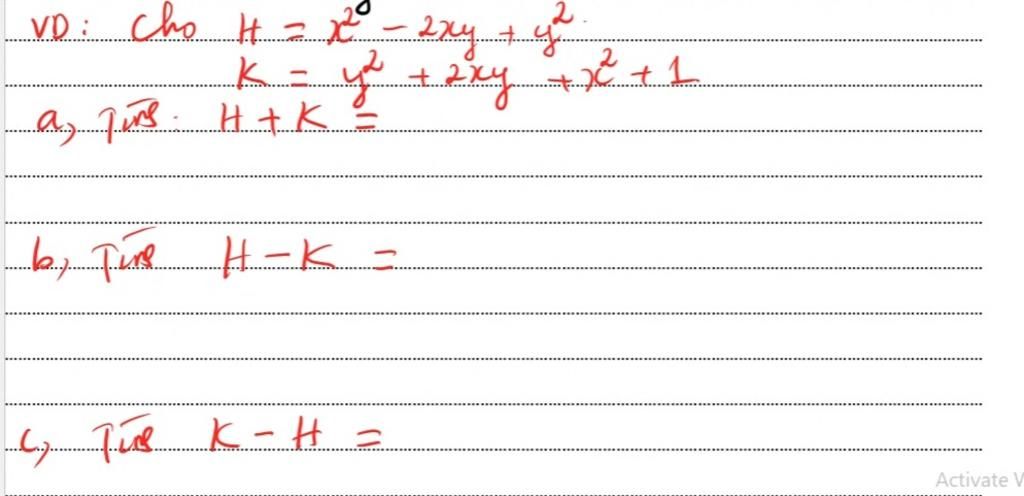 VD: Cho H = x² - 2xy + y²
K = y² + 2xy + x² + 1
a, Tính: H + K =
b, Tính H - K =
c, Tính K - H =
Activate